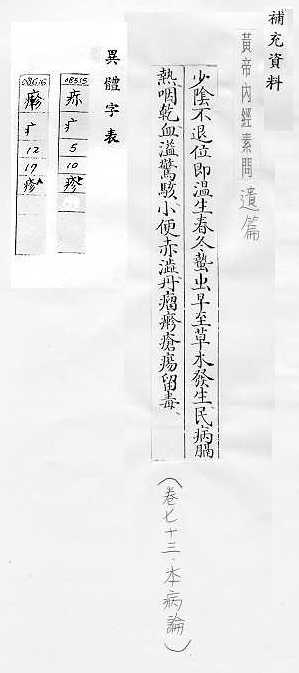 補充資料
黃帝內經素問 遺篇
少陰不退位即温生春冬蟄虫早至草木發生民病膈
熱咽乾血溢驚駭小便赤澁丹瘤疹瘡瘍留毒
(卷七十三.本病論)
異體字表
08515
疒
5
10
疹
08516
疒
12
17
疹